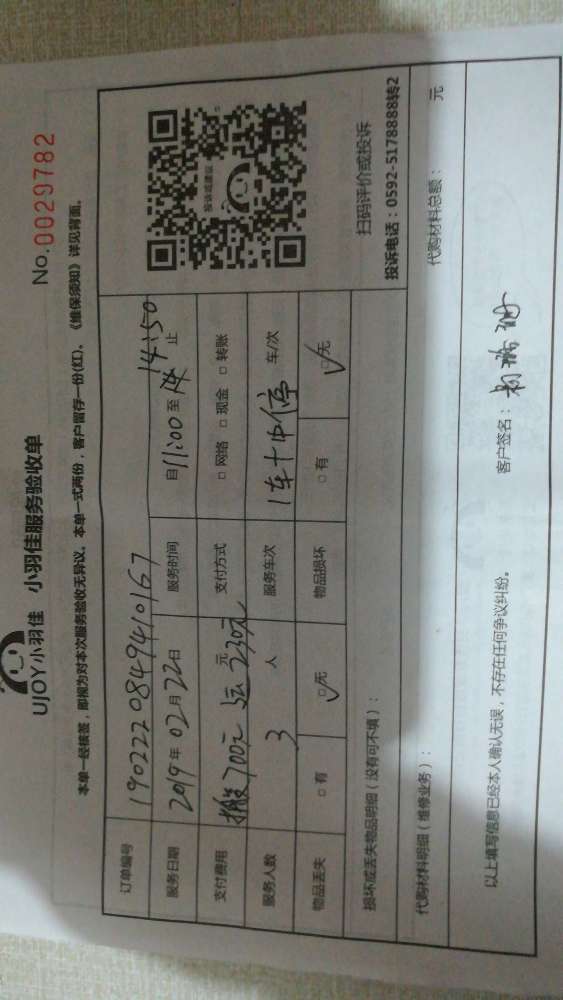 UJOY小羽佳 小羽佳服务验收单
No.0029782
本单一经核签，即视为对本次服务验收无异议。本单一式两份，客户留存一份(红)。《维保须知》详见背面。
订单编号 1902220849410167
服务日期 2019年02月22日 服务时间 自11:00至 14:50止
支付费用 搬700元 230元 元 支付方式 □网络 □现金 □转账
服务人数 3人 服务车次 1车+中停 车/次
物品丢失 □有 □无 物品损坏 □有 □无
投诉或建议
扫码评价或投诉
投诉电话：0592-5178888转2
损坏或丢失物品明细（没有可不填）：
代购材料明细（维修业务）： 代购材料总额： 元
以上填写信息已经本人确认无误，不存在任何争议纠纷。 客户签名：